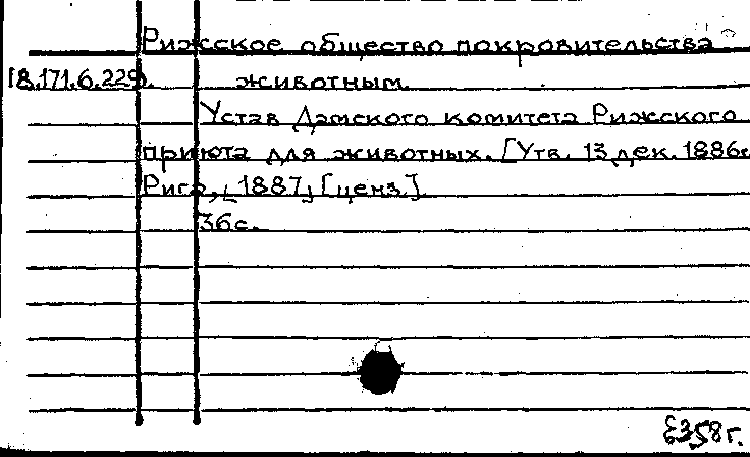 Рижское общество покровительства
18.171.6.229. животным.
Устав Дамского комитета Рижского
приюта для животных. [Утв. 13 дек. 1886г.
Рига, [1887] [ценз.]
36с.